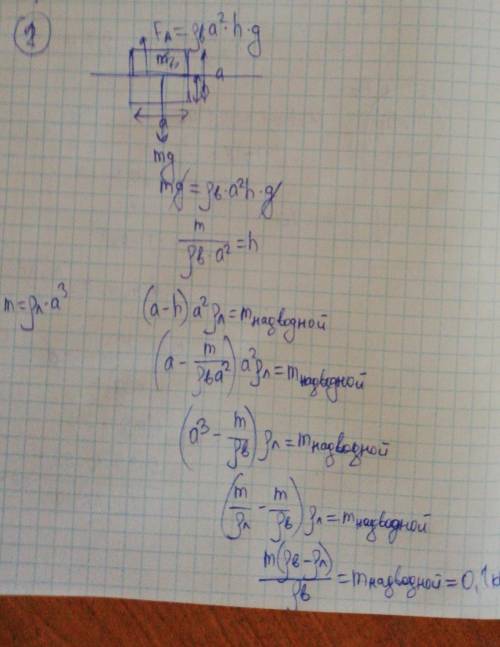 1
Fл = ρв a² · h · g
m/
a
a
mg
mg = ρв · a² h · g
m / (ρв · a²) = h
m = ρл · a³
(a - h) a² ρл = mнадводной
(a - m / (ρв a²)) a² ρл = mнадводной
(a³ - m / ρв) ρл = mнадводной
(m / ρл - m / ρв) ρл = mнадводной
m (ρв - ρл) / ρв = mнадводной = 0,1